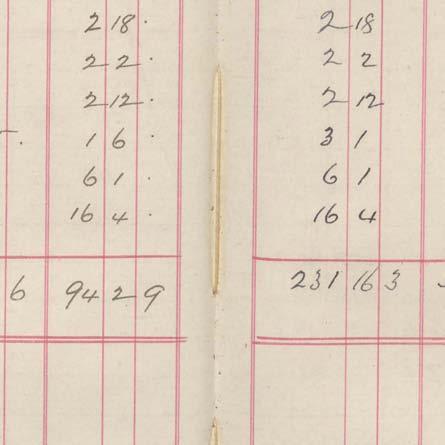 2 18 .
2 2 .
2 12 .
1 6 .
6 1 .
16 4 .
6 94 2 9
2 18
2 2
2 12
3 1
6 1
16 4
231 16 3